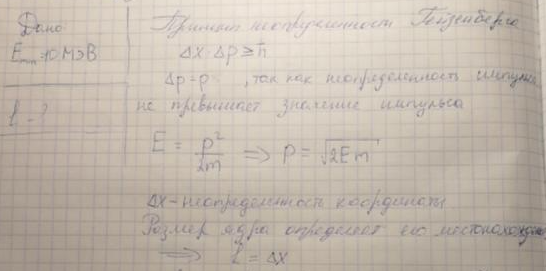 Дано
E min = 10 МэВ
l - ?
Принцип неопределенности Гейзенберга
Δx·Δp ≥ ħ
Δp = p , так как неопределенность импульса
не превышает значение импульса
E = p²/2m ⇒ p = √2Em
Δx - неопределенность координаты
Размер ядра определяет его местонахождение
⇒ l = Δx